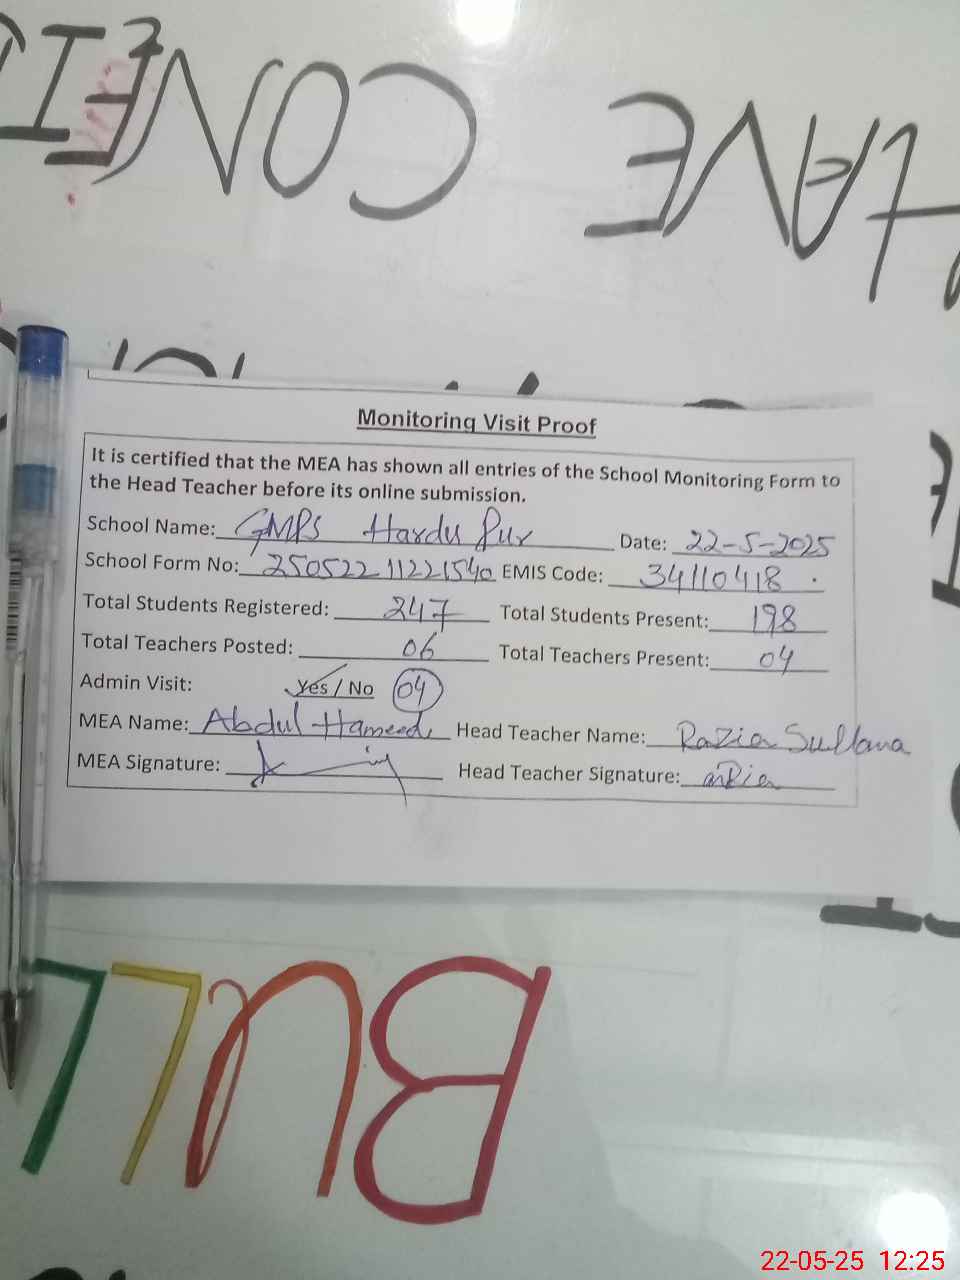 HAVE CONFI
Monitoring Visit Proof
It is certified that the MEA has shown all entries of the School Monitoring Form to
the Head Teacher before its online submission.
School Name: GMPS Hardu Pur Date: 22-5-2025
School Form No: 25052211221540 EMIS Code: 34110418
Total Students Registered: 247 Total Students Present: 198
Total Teachers Posted: 06 Total Teachers Present: 04
Admin Visit: Yes / No 04
MEA Name: Abdul Hameed Head Teacher Name: Razia Sultana
MEA Signature: Head Teacher Signature:
BULL
22-05-25 12:25